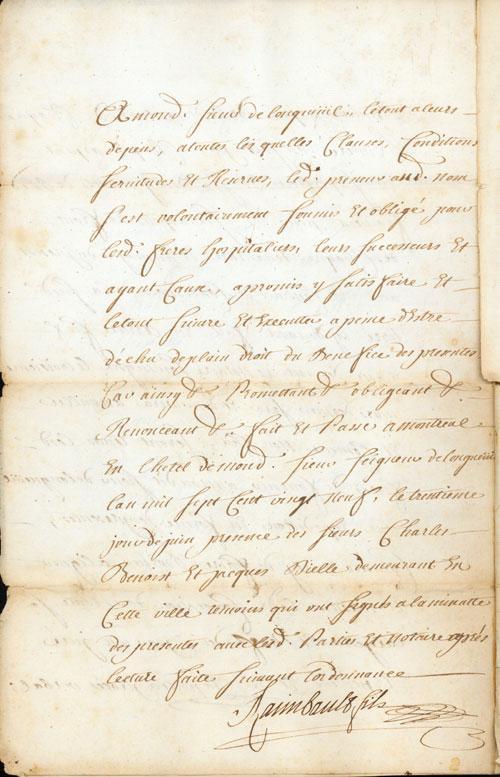 A mond. sieur de longueuil, le tout a leurs
depens, a toutes lesquelles Clauses, Conditions
servitudes Et Reserves, led. preneur aud. nom
s'est volontairement soumis Et obligé pour
lesd. freres hospitaliers, leurs successeurs Et
ayant Cause, a promis y satisfaire Et
le tout suivre Et Executter a peine d'Estre
déchu de plain droit du Benefice des presentes
Car ainsy &c Promettant &c obligeant &c
Renonceant &c fait et Passé a montreal
En l'hotel de mond. sieur seigneur de longueuil
l'an mil sept Cent vingt neuf, le trentieme
jour de juin presence des sieurs Charles
Benoist Et jacques Vielle demeurant En
Cette ville temoins qui ont signés a la minutte
des presentes avec lesd. Parties Et Notaire après
lecture faite suivant l'ordonnance
Raimbault fils
2